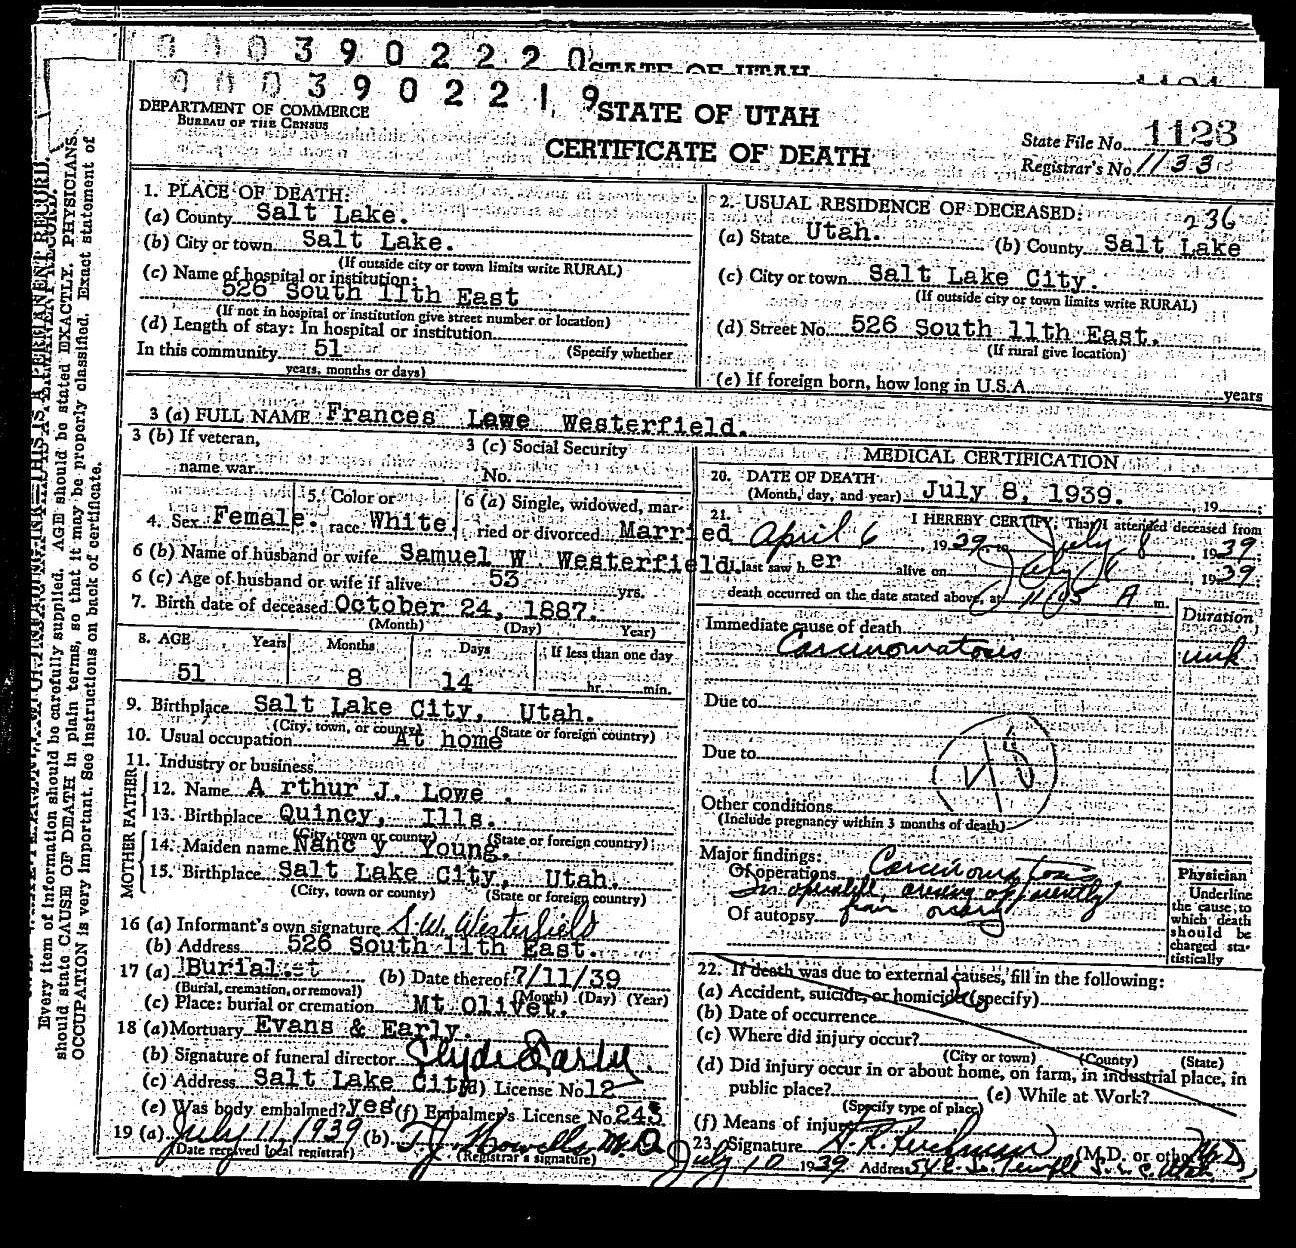 0003902220
STATE OF UTAH
0003902219
DEPARTMENT OF COMMERCE
BUREAU OF THE CENSUS
STATE OF UTAH
CERTIFICATE OF DEATH
State File No. 1123
Registrar's No. 1133
1. PLACE OF DEATH:
(a) County Salt Lake.
(b) City or town Salt Lake.
(If outside city or town limits write RURAL)
(c) Name of hospital or institution:
526 South 11th East
(If not in hospital or institution give street number or location)
(d) Length of stay: In hospital or institution
In this community 51 (Specify whether
years, months or days)
2. USUAL RESIDENCE OF DECEASED: 236
(a) State Utah. (b) County Salt Lake
(c) City or town Salt Lake City.
(If outside city or town limits write RURAL)
(d) Street No. 526 South 11th East.
(If rural give location)
(e) If foreign born, how long in U.S.A. years
3 (a) FULL NAME Frances Lowe Westerfield.
3 (b) If veteran,
name war
3 (c) Social Security
No.
4. Sex Female. 5. Color or race White. 6 (a) Single, widowed, married or divorced Married
6 (b) Name of husband or wife Samuel W Westerfield.
6 (c) Age of husband or wife if alive 53 yrs.
7. Birth date of deceased October 24, 1887.
(Month) (Day) Year)
8. AGE Years Months Days If less than one day
51 8 14 hr. min.
9. Birthplace Salt Lake City, Utah.
(City, town, or county) (State or foreign country)
10. Usual occupation At home
11. Industry or business
FATHER
12. Name A rthur J. Lowe.
13. Birthplace Quincy, Ills.
(City, town or county) (State or foreign country)
MOTHER
14. Maiden name Nanc y Young.
15. Birthplace Salt Lake City, Utah.
(City, town or county) (State or foreign country)
16 (a) Informant's own signature S.W. Westerfield
(b) Address 526 South 11th East.
17 (a) Burial (b) Date thereof 7/11/39
(Burial, cremation, or removal) (Month) (Day) (Year)
(c) Place: burial or cremation Mt Olivet.
18 (a) Mortuary Evans & Early.
(b) Signature of funeral director Clyde Early.
(c) Address Salt Lake City (d) License No. 12
(e) Was body embalmed? yes (f) Embalmer's License No. 243
19 (a) July 11, 1939 (b) T.J. Howells M.D.
(Date received local registrar) (Registrar's signature)
MEDICAL CERTIFICATION
20. DATE OF DEATH
(Month, day, and year) July 8, 1939. 19
21. I HEREBY CERTIFY, That I attended deceased from
April 6, 1939, to July 8, 1939
I last saw her alive on July 8, 1939
death occurred on the date stated above, at A m.
Duration
Immediate cause of death
Carcinomatosis unk
Due to
Due to
Other conditions
(Include pregnancy within 3 months of death)
Major findings:
Of operations Carcinomatosis
Inoperable arising apparently
Of autopsy from ovary
Physician
Underline
the cause to
which death
should be
charged sta-
tistically
22. If death was due to external causes, fill in the following:
(a) Accident, suicide, or homicide (specify)
(b) Date of occurrence
(c) Where did injury occur?
(City or town) (County) (State)
(d) Did injury occur in or about home, on farm, in industrial place, in
public place? (e) While at Work?
(Specify type of place)
(f) Means of injury
23. Signature (M.D. or other) M.D.
July 10 1939 Address 54 E. So. Temple S.L.C. Utah
Every item of information should be carefully supplied. AGE should be stated EXACTLY. PHYSICIANS
should state CAUSE OF DEATH in plain terms, so that it may be properly classified. Exact statement of
OCCUPATION is very important. See instructions on back of certificate.